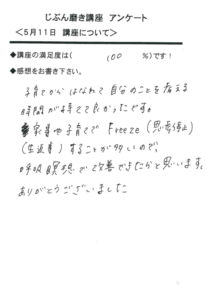 じぶん磨き講座 アンケート
<5月11日 講座について>
◆講座の満足度は( 100 %)です!
◆感想をお書き下さい。
子育てからはなれて自分のことを考える
時間が持てて良かったです。
家事や子育てでFreeze(思考停止)
(生返事)することが多いので、
呼吸瞑想で改善できたらと思います。
ありがとうございました